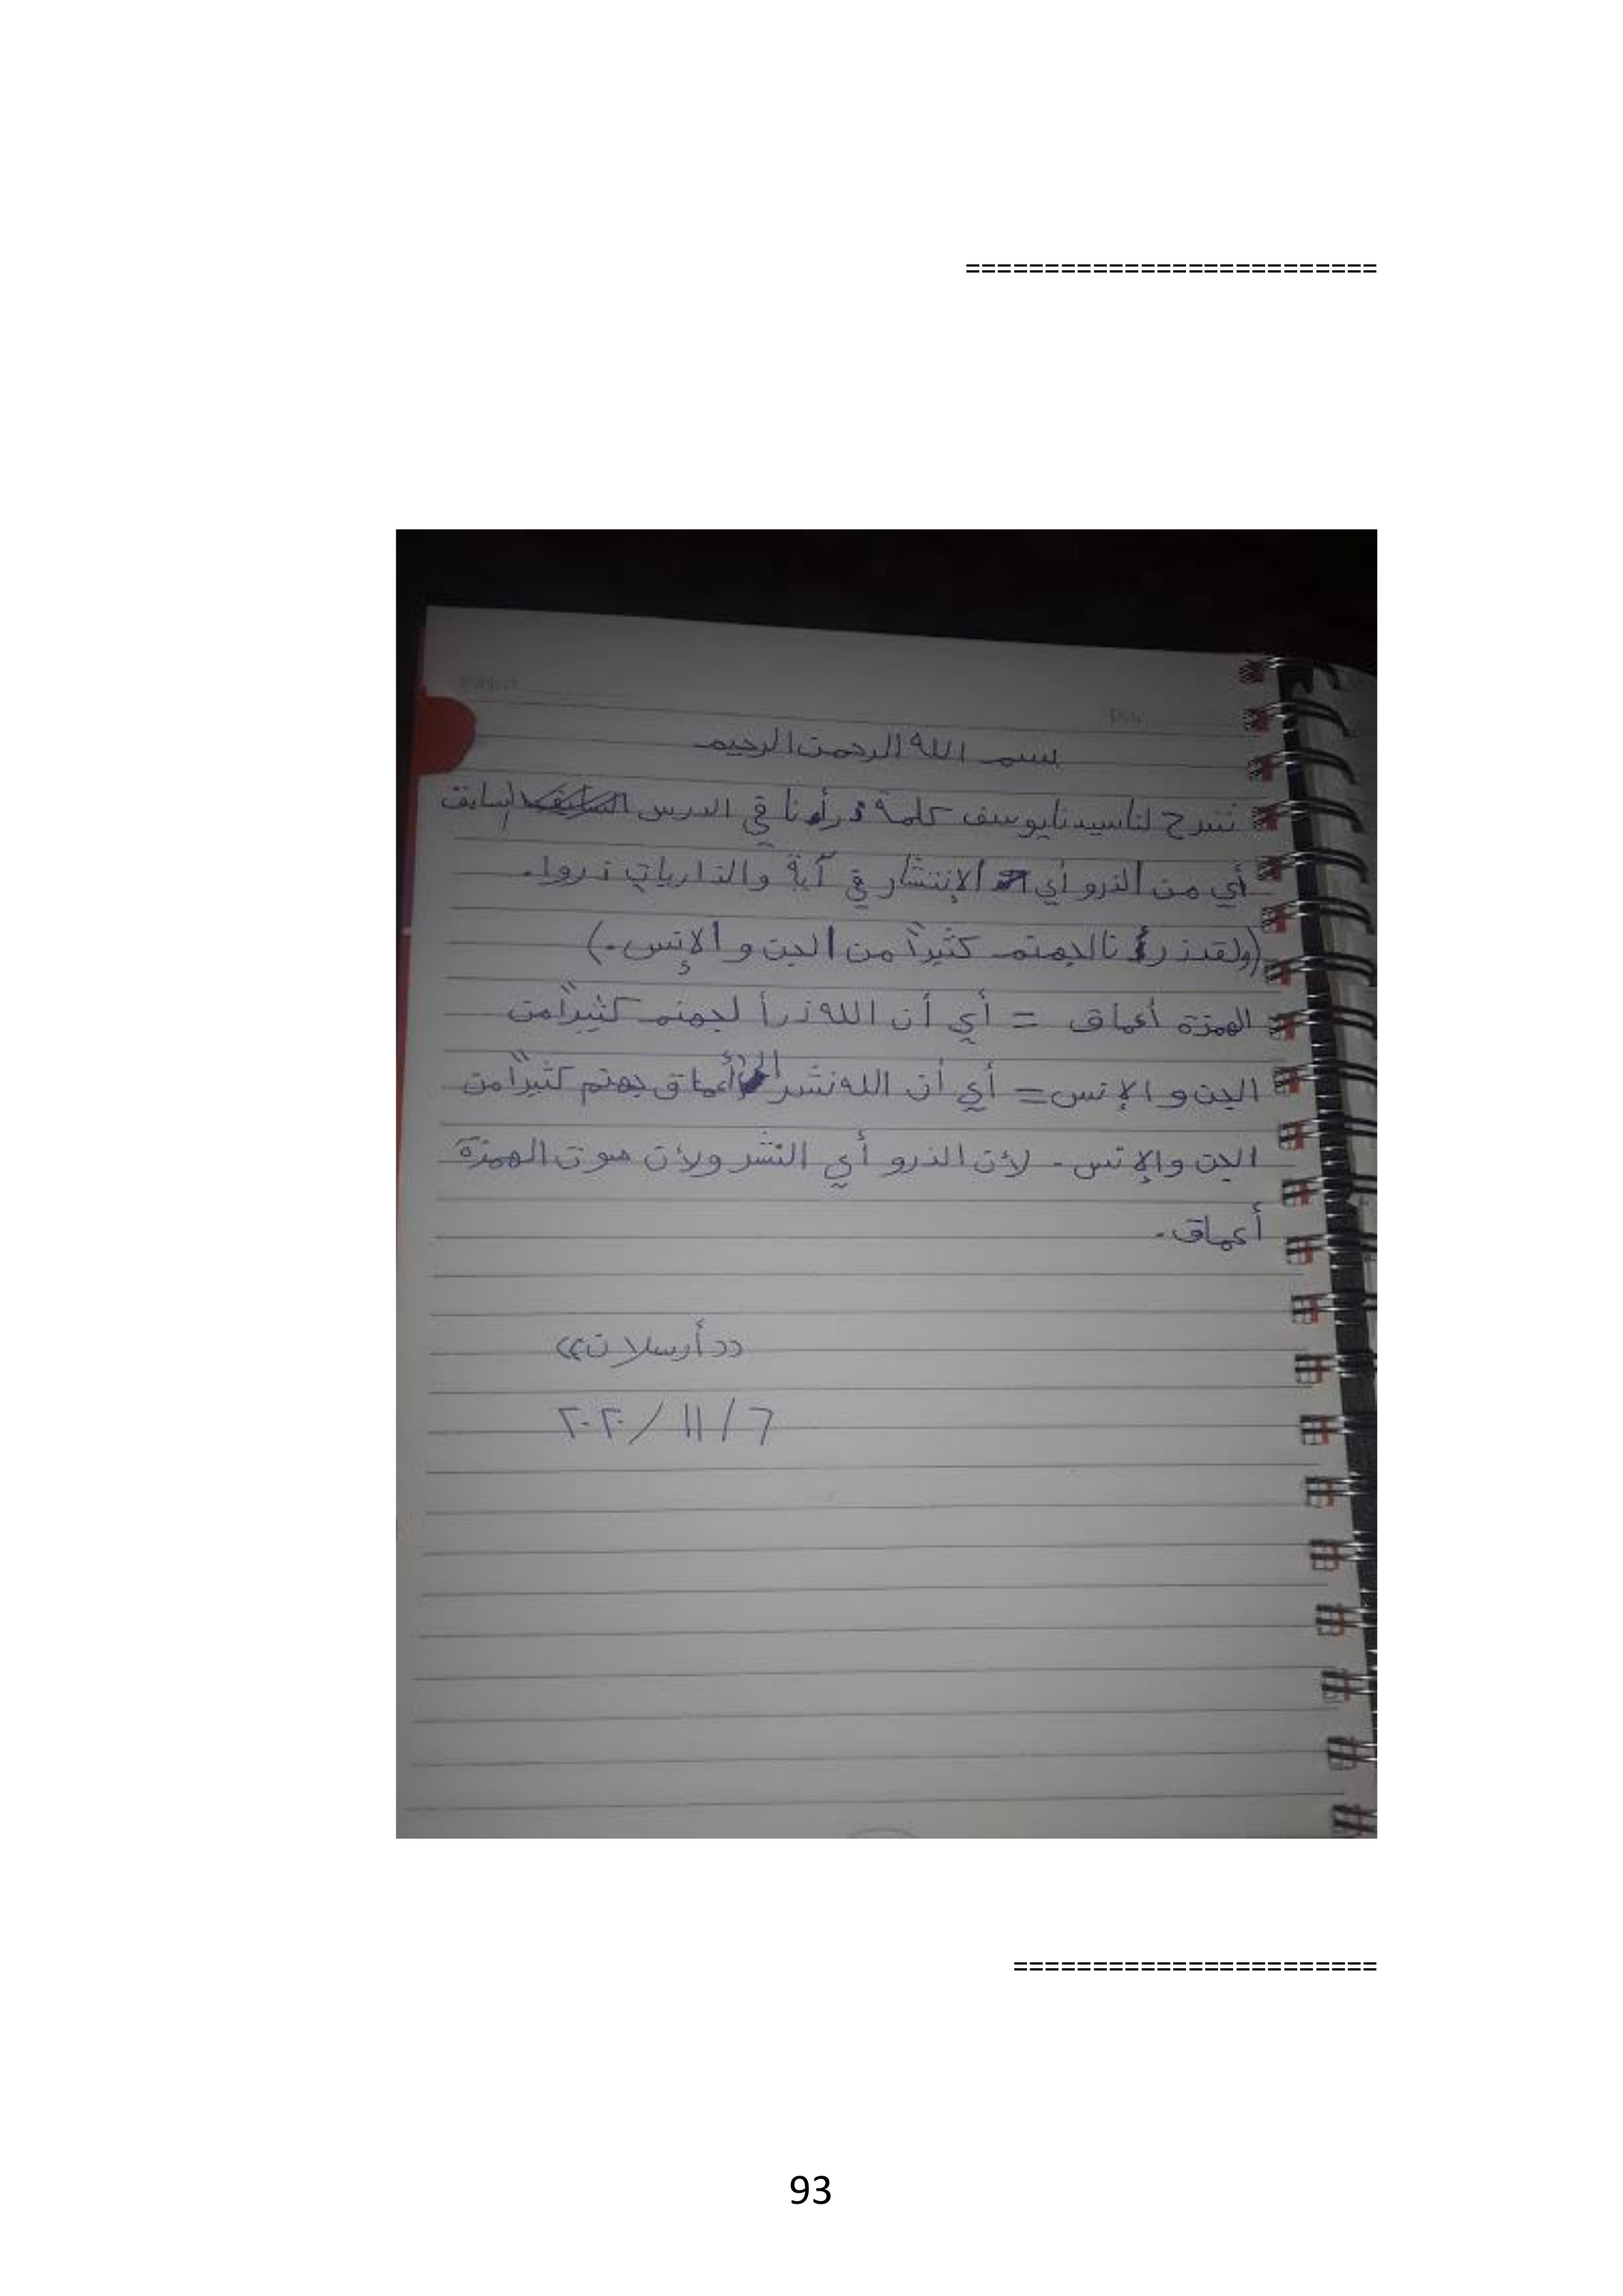 ==========================
بسم الله الرحمن الرحيم
نشرح لنا سيدنا يوسف كلمة ذرأنا في الدرس السابق
أي من الذرو أي الإنتشار في آية والذاريات ذروا.
(ولقد ذرأنا لجهنم كثيراً من الجن والإنس.)
الهمزة أعماق = أي أن الله ذرأ لجهنم كثيراً من
الجن والإنس = أي أن الله نشر إلى أعماق جهنم كثيراً من
الجن والإنس. لأن الذرو أي النشر ولأن صوت الهمزة
أعماق.
((أرسلان))
٦/١١/٢٠٢٠
=======================
93